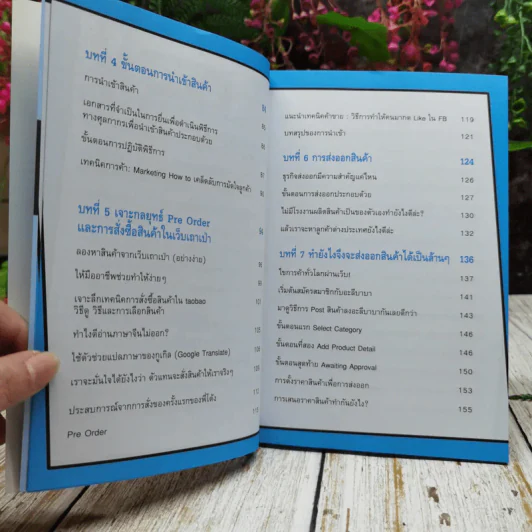 บทที่ 4 ขั้นตอนการนำเข้าสินค้า
การนำเข้าสินค้า
เอกสารที่จำเป็นในการยื่นเพื่อดำเนินพิธีการ
ทางศุลกากรเพื่อนำเข้าสินค้าประกอบด้วย
ขั้นตอนการปฏิบัติพิธีการ
เทคนิคการค้า: Marketing How to เคล็ดลับการมัดใจลูกค้า
บทที่ 5 เจาะกลยุทธ์ Pre Order
และการสั่งซื้อสินค้าในเว็บเถาเป่า
ลองหาสินค้าจากเว็บเถาเป่า (อย่างง่าย)
ให้มืออาชีพช่วยทำให้ง่ายๆ
เจาะลึกเทคนิคการสั่งซื้อสินค้าใน taobao
วิธีดู วิธีและการเลือกสินค้า
ทำไงดีอ่านภาษาจีนไม่ออก?
ใช้ตัวช่วยแปลภาษาของกูเกิ้ล (Google Translate)
เราจะมั่นใจได้ยังไงว่า ตัวแทนจะสั่งสินค้าให้เราจริงๆ
ประสบการณ์จากการสั่งของครั้งแรกของพี่โต้ง
Pre Order
แนะนำเทคนิคค้าขาย : วิธีการทำให้คนมากด Like ใน FB 119
บทสรุปของการนำเข้า 121
บทที่ 6 การส่งออกสินค้า 124
ธุรกิจส่งออกมีความสำคัญแค่ไหน 126
ขั้นตอนการส่งออกประกอบด้วย 127
ไม่มีโรงงานผลิตสินค้าเป็นของตัวเองทำยังไงดีล่ะ? 130
แล้วเราจะหาลูกค้าต่างประเทศยังไงดีล่ะ 132
บทที่ 7 ทำยังไงจึงจะส่งออกสินค้าได้เป็นล้านๆ 136
ไขการค้าทั่วโลกผ่านเว็บ! 137
เริ่มต้นสมัครสมาชิกกับอะลีบาบา 141
มาดูวิธีการ Post สินค้าลงอะลีบาบากันเลยดีกว่า 143
ขั้นตอนแรก Select Category 146
ขั้นตอนที่สอง Add Product Detail 146
ขั้นตอนสุดท้าย Awaiting Approval 150
การตั้งราคาสินค้าเพื่อการส่งออก 153
การเสนอราคาสินค้าทำกันยังไง? 155